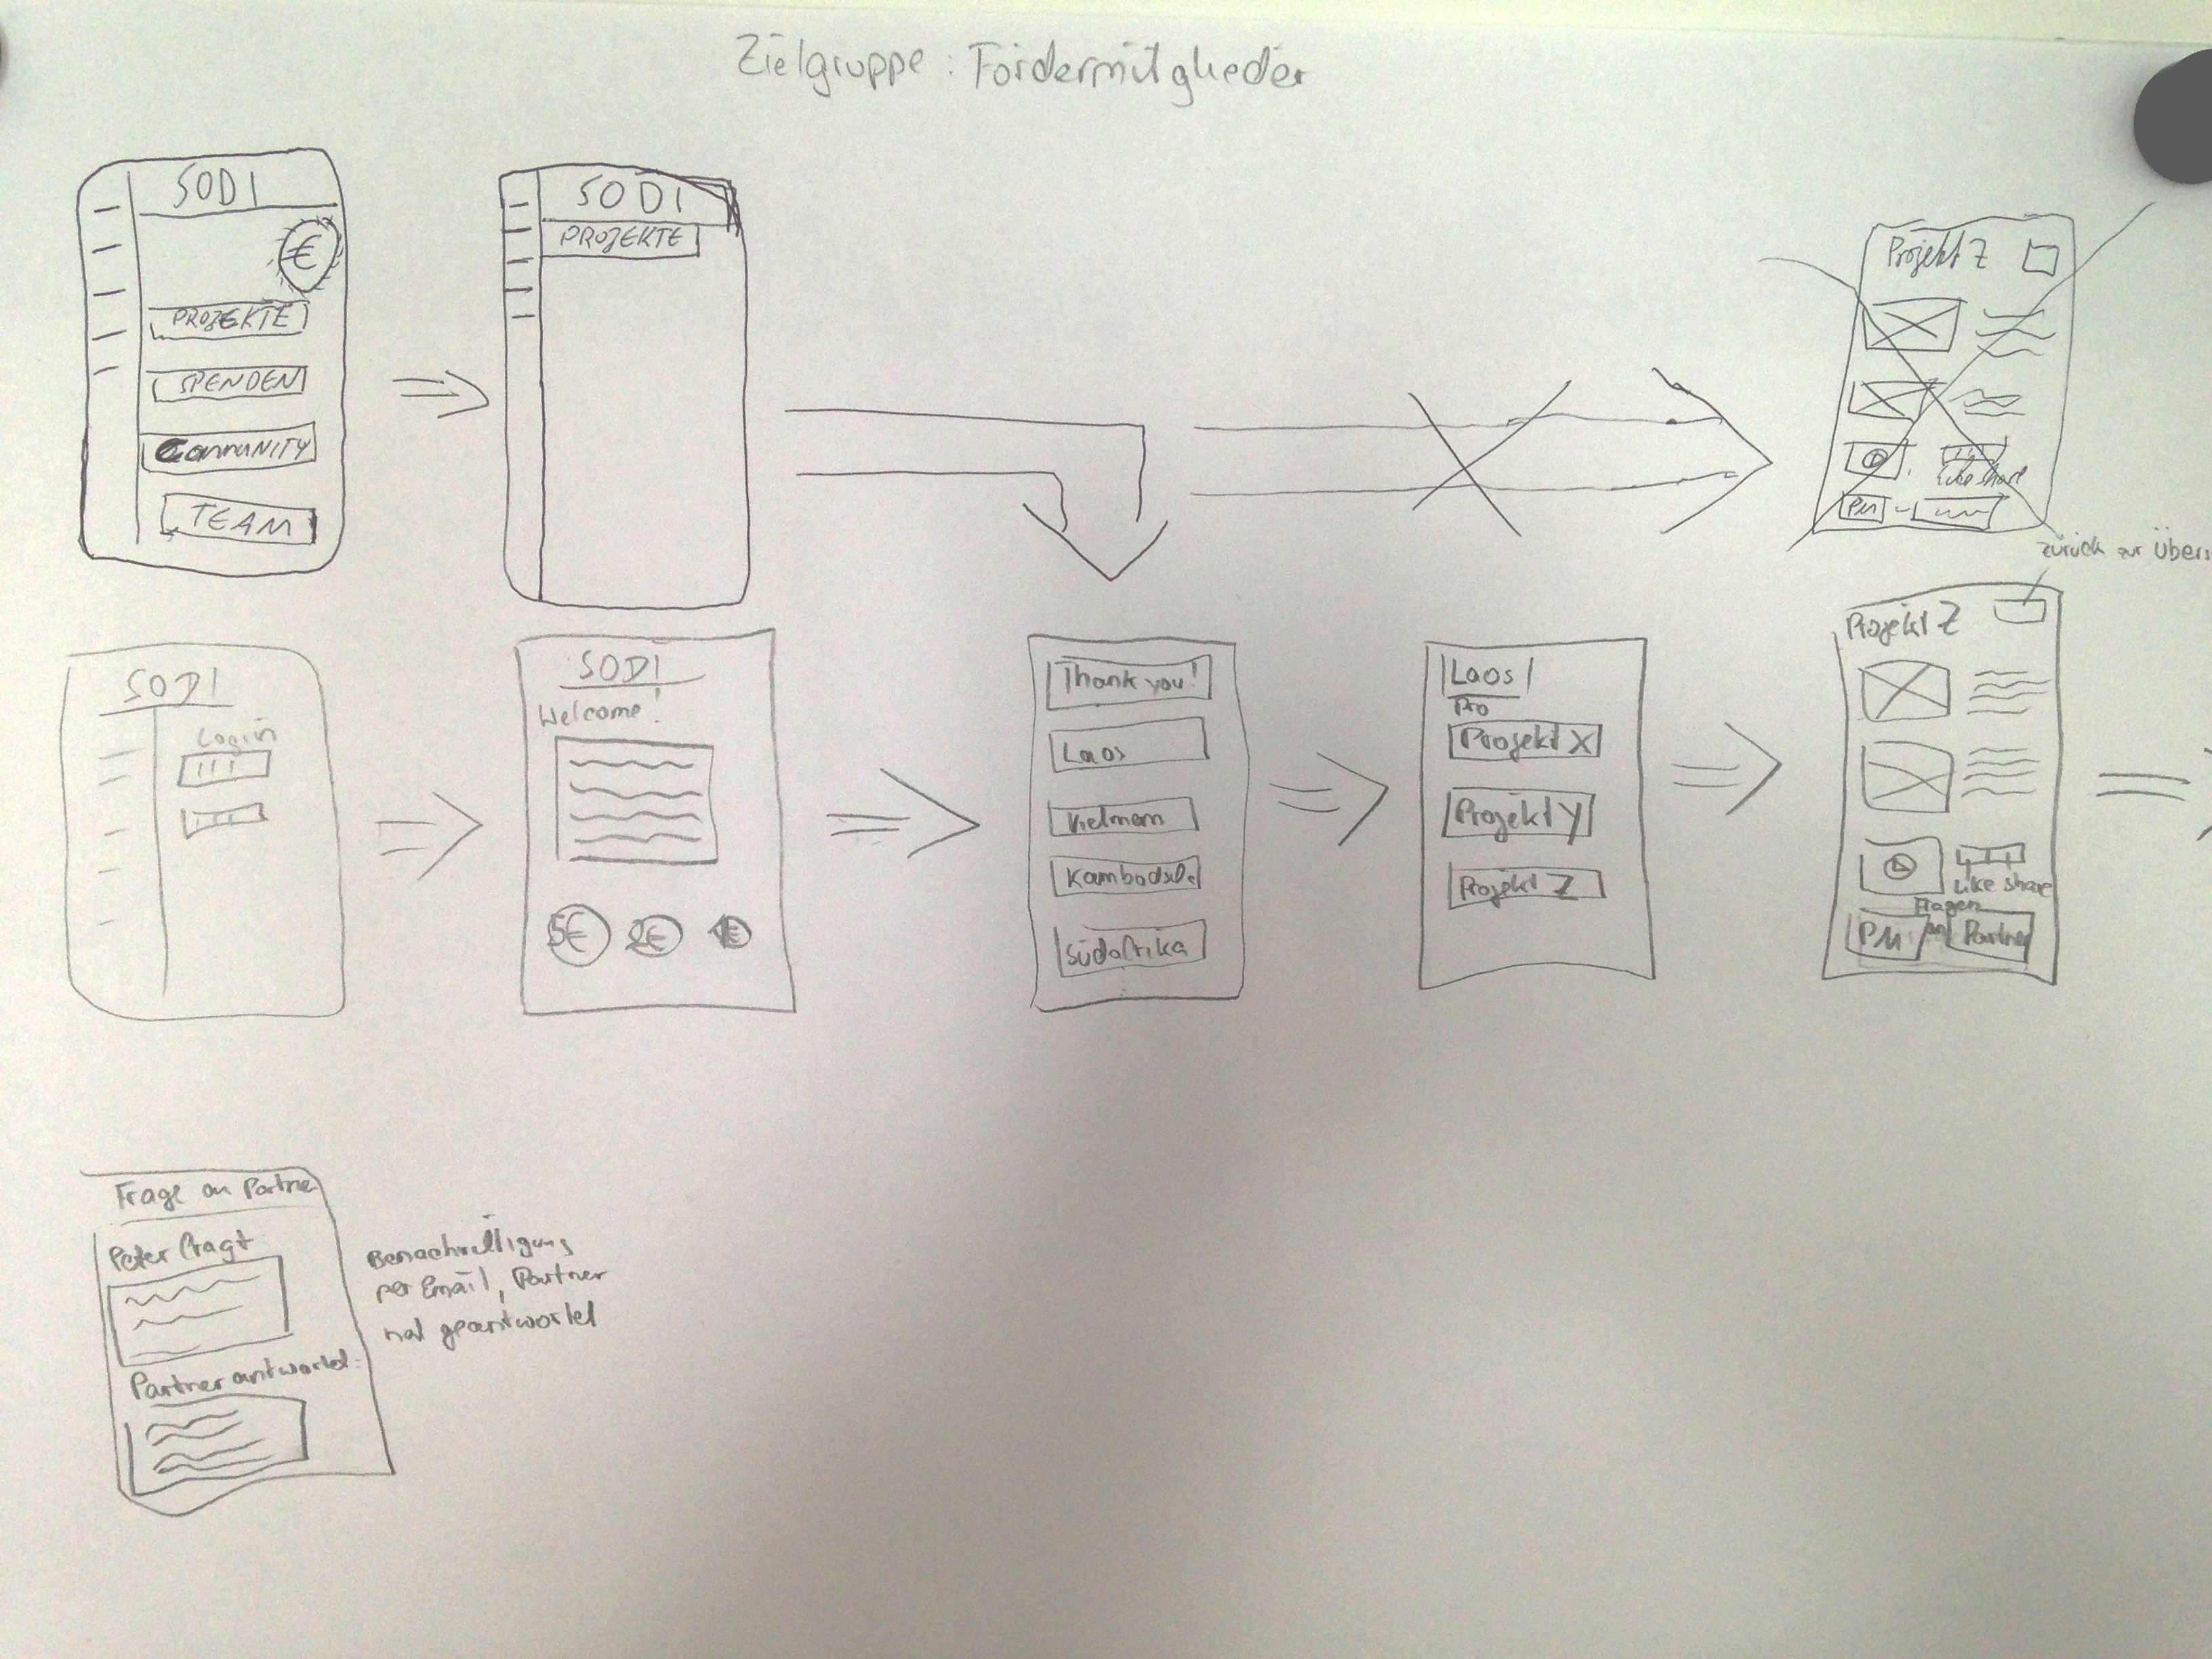 Zielgruppe: Fördermitglieder
SODI
€
PROJEKTE
SPENDEN
COMMUNITY
TEAM
SODI
PROJEKTE
Projekt Z
Like share
PM
zurück zur Übers
SODI
Login
SODI
Welcome!
5€ 2€ 1€
Thank you!
Laos
Vietnam
Kambodscha
Südafrika
Laos
Pro
Projekt X
Projekt Y
Projekt Z
Projekt Z
Like share
Fragen
PM an Partner
Frage an Partner
Peter fragt
Partner antwortet:
Benachrichtigung
per Email, Partner
hat geantwortet